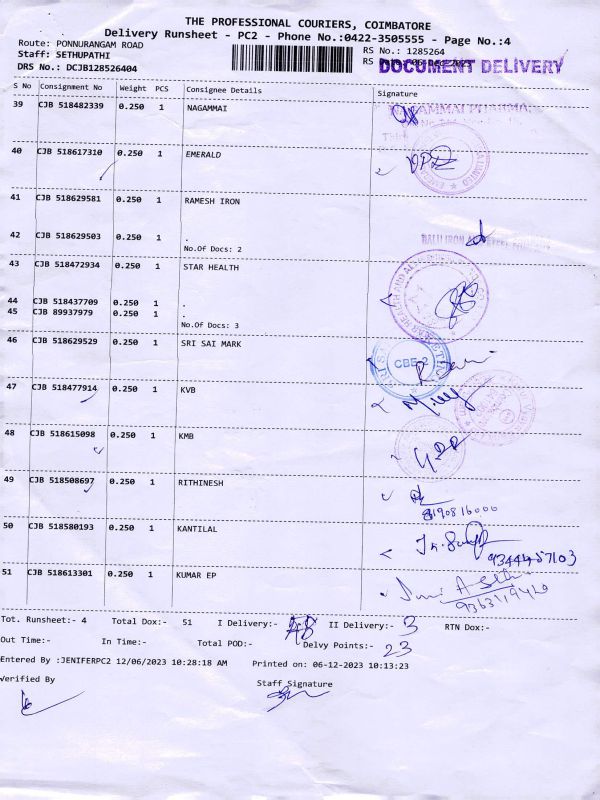 THE PROFESSIONAL COURIERS, COIMBATORE
Delivery Runsheet - PC2 - Phone No.:0422-3505555 - Page No.:4
Route: PONNURANGAM ROAD
RS No.: 1285264
Staff: SETHUPATHI
RS Date: 06-Dec-2023
DOCUMENT DELIVERY
DRS No.: DCJB128526404
S No Consignment No Weight PCS Consignee Details Signature
39 CJB 518482339 0.250 1 NAGAMMAI
40 CJB 518617310 0.250 1 EMERALD
41 CJB 518629581 0.250 1 RAMESH IRON
42 CJB 518629503 0.250 1 .
No.Of Docs: 2
43 CJB 518472934 0.250 1 STAR HEALTH
44 CJB 518437709 0.250 1 .
45 CJB 89937979 0.250 1 .
No.Of Docs: 3
46 CJB 518629529 0.250 1 SRI SAI MARK
CBE-2
47 CJB 518477914 0.250 1 KVB
48 CJB 518615098 0.250 1 KMB
49 CJB 518508697 0.250 1 RITHINESH
8190816000
50 CJB 518580193 0.250 1 KANTILAL
9344457103
51 CJB 518613301 0.250 1 KUMAR EP
Tot. Runsheet:- 4 Total Dox:- 51 I Delivery:- 48 II Delivery:- 3 RTN Dox:-
Out Time:- In Time:- Total POD:- Delvy Points:- 23
Entered By :JENIFERPC2 12/06/2023 10:28:18 AM Printed on: 06-12-2023 10:13:23
Verified By Staff Signature